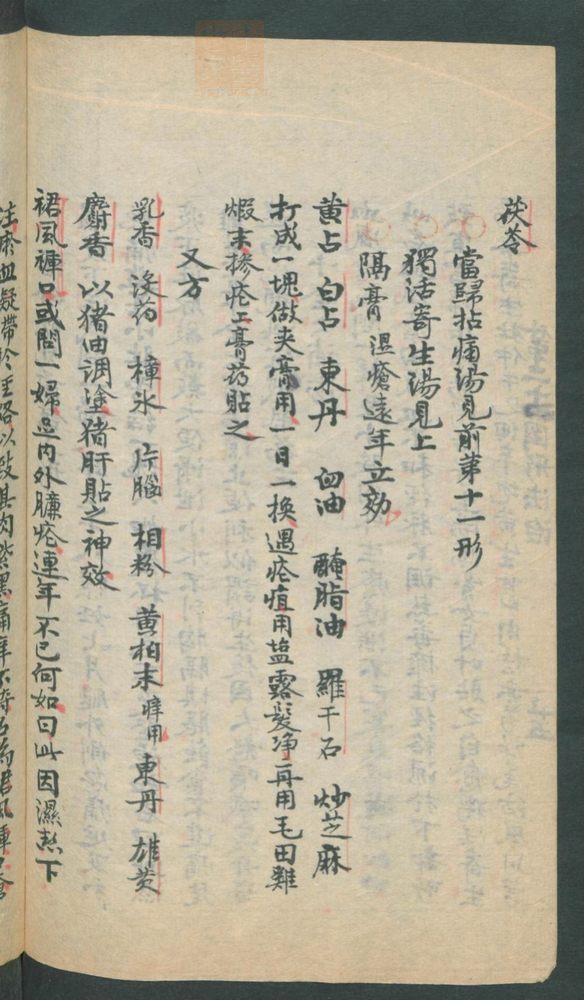 茯苓
當歸拈痛湯見前第十一形
獨活寄生湯見上
隔膏 濕瘡遠年立効
黃占 白占 東丹 血油 醃脂油 羅干石 炒芝麻
打成一塊做夾膏用一日一換遇疮疽用盐露髮净再用毛田雞
煆末掺疮上膏药貼之
又方
乳香 没药 樟氷 片腦 相粉 黃柏末 痒甲 東丹 雄黄
麝香 以猪油調塗猪肝貼之神效
裙風褲口或問一婦 足内外臁疮連年不已何如曰此因濕热下
注瘀血凝帶於 經路以致其肉紫黑痛痒不